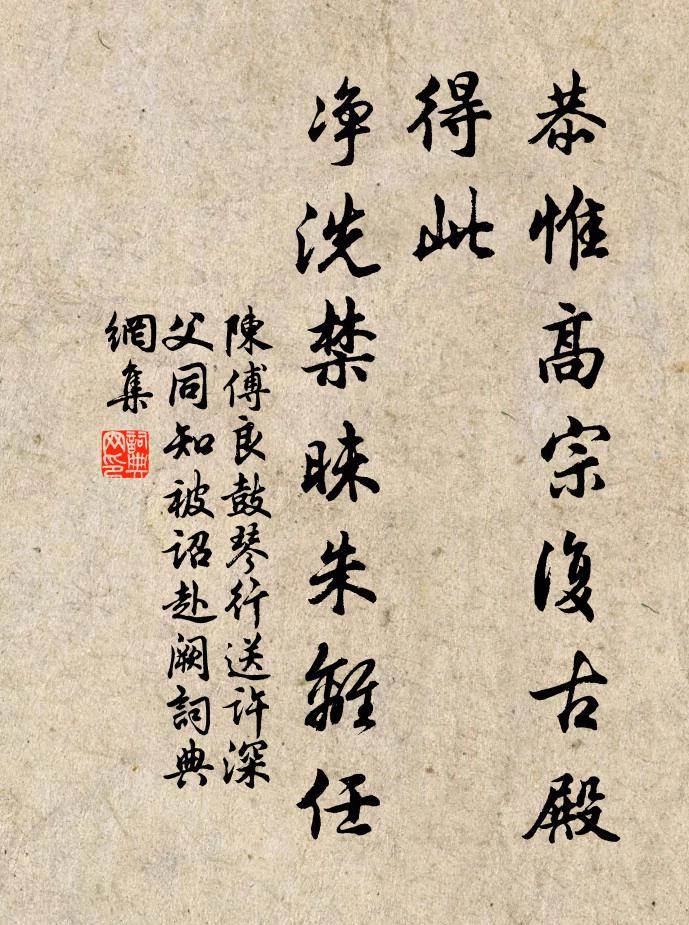 恭惟高宗復古殿
得此
净洗禁昧朱離任
陳傅良鼓琴行送許深
父同知被詔赴闕詞典
網集
詞典網印